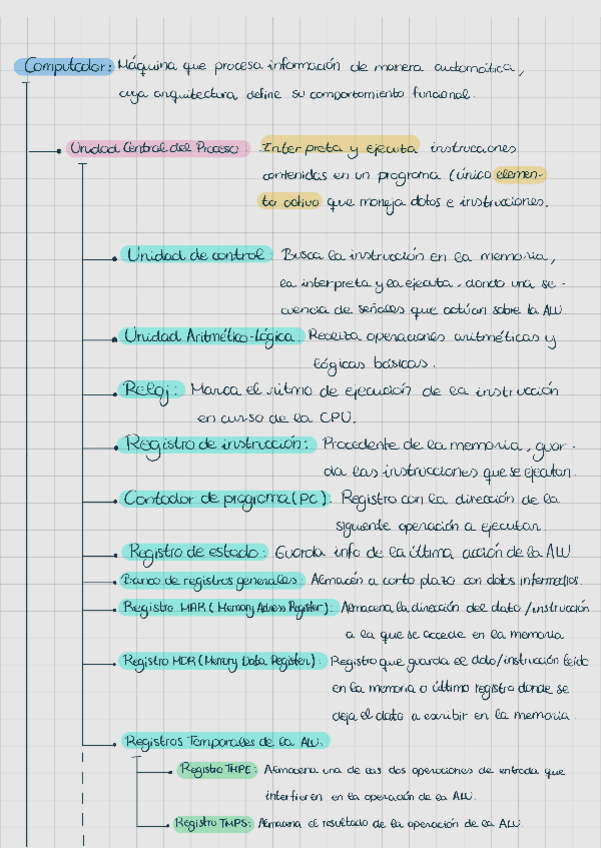 Computador: Máquina que procesa información de manera automática,
cuya arquitectura define su comportamiento funcional.
Unidad Central del Proceso Interpreta y ejecuta instrucciones
contenidas en un programa (único elemen-
to activo que maneja datos e instrucciones.
Unidad de control: Busca la instrucción en la memoria,
la interpreta y la ejecuta, dando una se-
cuencia de señales que actúan sobre la ALU
Unidad Aritmético-Lógica: Realiza operaciones aritméticas y
lógicas básicas.
Reloj: Marca el ritmo de ejecución de la instrucción
en curso de la CPU.
Registro de instrucción: Procedente de la memoria, guar-
da las instrucciones que se ejecutan.
Contador de programa (PC): Registro con la dirección de la
siguiente operación a ejecutar.
Registro de estado: Guarda info de la última acción de la ALU
Banco de registros generales: Almacén a corto plazo con datos intermedios.
Registro MAR (Memory Adress Register): Almacena la dirección del dato/instrucción
a la que se accede en la memoria
Registro MDR (Memory Data Register): Registro que guarda el dato/instrucción leído
en la memoria o último registro donde se
deja el dato a escribir en la memoria.
Registros Temporales de la ALU.
Registro TMPE: Almacena una de las dos operaciones de entrada que
interfieren en la operación de la ALU.
Registro TMPS: Almacena el resultado de la operación de la ALU.